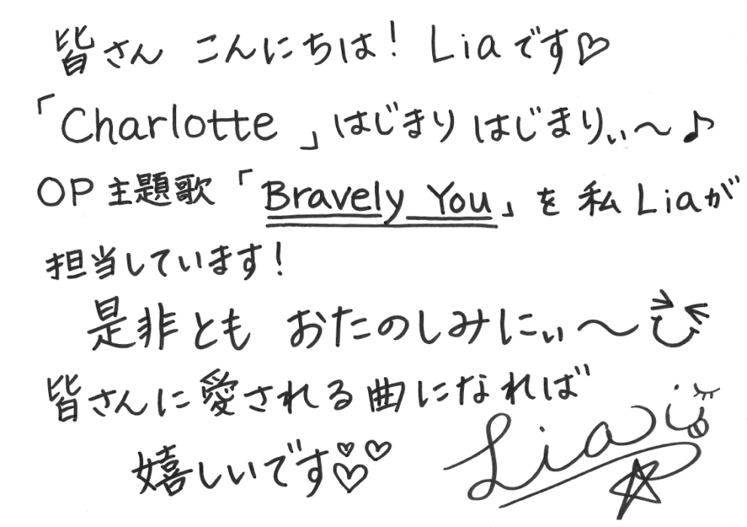 皆さん こんにちは! Liaです♡
「Charlotte」はじまりはじまりぃ〜♪
OP主題歌「Bravely You」を私Liaが
担当しています!
是非とも おたのしみにぃ〜
皆さんに愛される曲になれば
嬉しいです♡♡♡
Lia